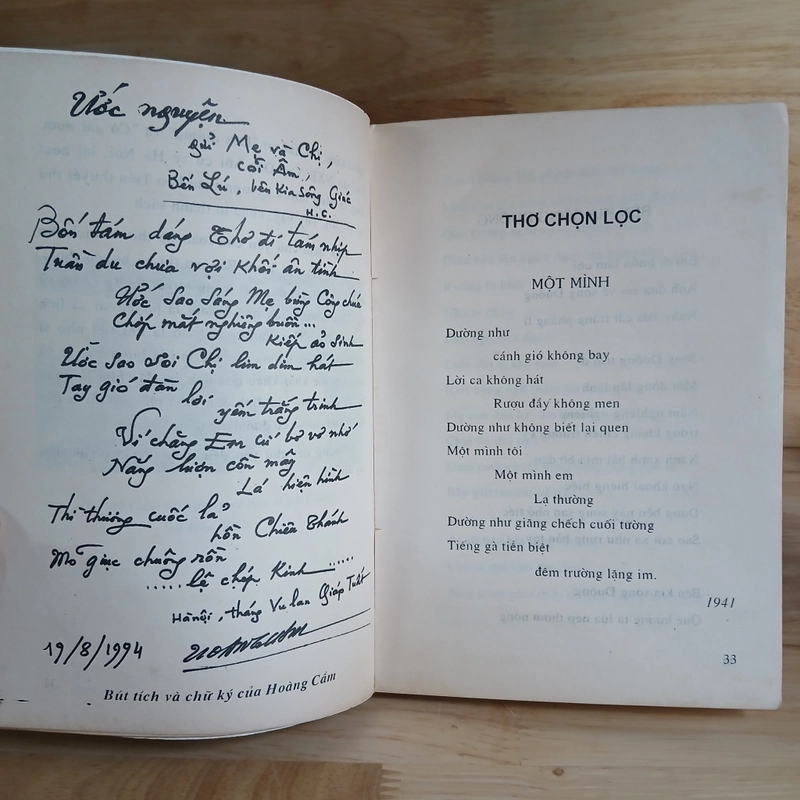 Ước nguyện
gửi Mẹ và Chị,
cõi Âm,
Bến Lú, bên Kia Sông Giác
H.C.
Bốn tám dáng Thơ đi tám nhịp
Tuần du chưa vợi Khối ân tình
Ước Sao Sáng Mẹ bừng Công chúa
Chớp mắt nghiêng buồn...
Kiếp ảo sinh
Ước Sao Soi Chị lim dim hát
Tay gió đàn lơi
yếm trắng trinh
Ví chăng Em cứ bơ vơ nhớ
Nắng lượn cồn mây
Lá hiện hình
Thì thương cuốc lả
hồn Chiêu Thánh
Mõ giục chuông rồn
.....lệ chép Kinh.....
Hà Nội, tháng Vu lan Giáp Tuất
19/8/1994
Bút tích và chữ ký của Hoàng Cầm
THƠ CHỌN LỌC
MỘT MÌNH
Dường như
cánh gió không bay
Lời ca không hát
Rượu đầy không men
Dường như không biết lại quen
Một mình tôi
Một mình em
Lạ thường
Dường như giăng chếch cuối tường
Tiếng gà tiễn biệt
đêm trường lặng im.
1941
33